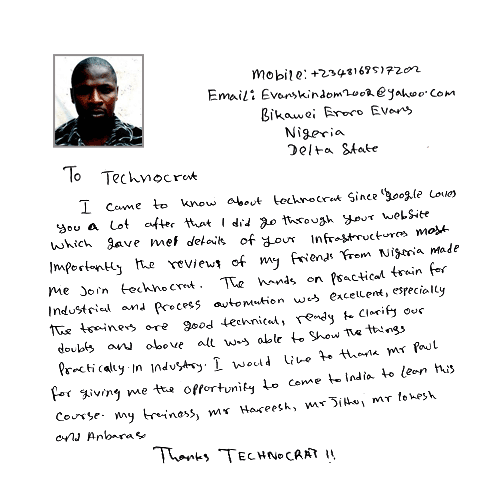 Mobile: +2348168517202
Email: Evanskindom2002@yahoo.com
Bikawei Eroro Evans
Nigeria
Delta State
To Technocrat
I came to know about technocrat since "google loves
you a lot after that I did go through your website
which gave me details of your Infrastructures most
Importantly the reviews of my friends from Nigeria made
me Join technocrat. The hands on Practical train for
Industrial and Process automation was excellent, especially
the trainers are good technical, ready to clarify our
doubts and above all was able to show the things
Practically in Industry. I would like to thank Mr Paul
for giving me the opportunity to come to India to lean this
course. my trainess, mr Hareesh, mr Jithu, mr lokesh
and Anbarase
Thanks TECHNOCRAT !!